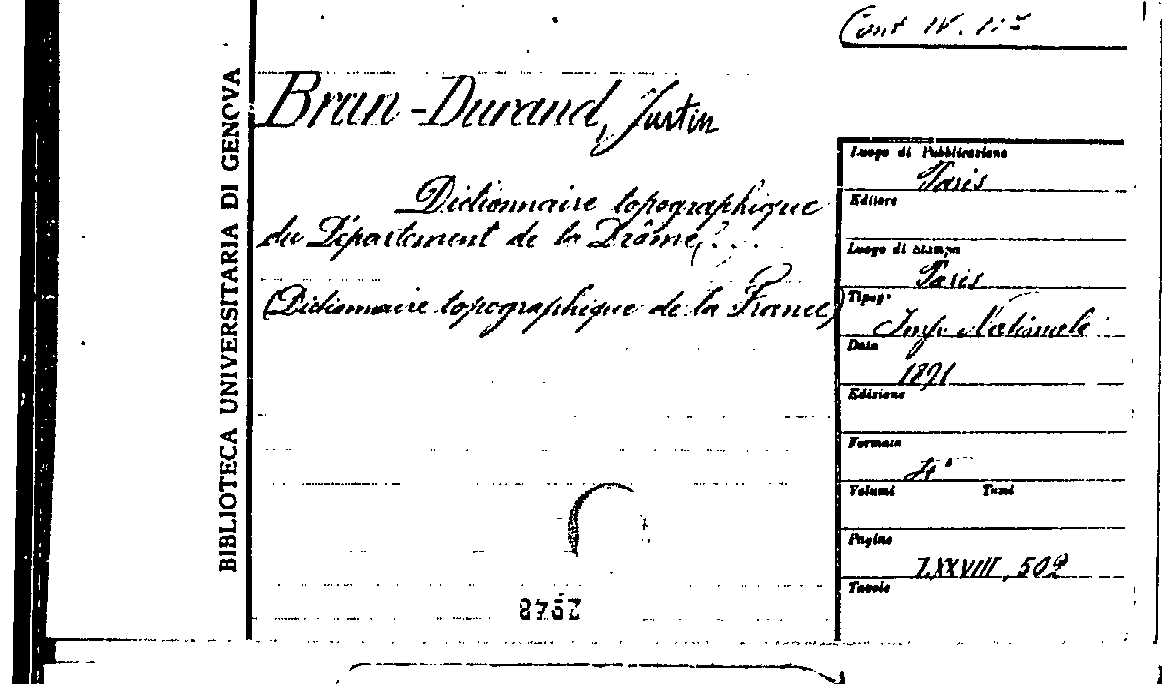 Cont IV. 11
BIBLIOTECA UNIVERSITARIA DI GENOVA
Brun-Durand, Justin
Dictionnaire topographique
du Département de la Drôme, ...
(Dictionnaire topographique de la France)
Luogo di Pubblicazione
Paris
Editore
Luogo di Stampa
Paris
Tipogr.
Imp. Nationale
Data
1891
Edizione
Formato
4°
Volumi Tomi
Pagine
LXXVIII, 502
Tavole